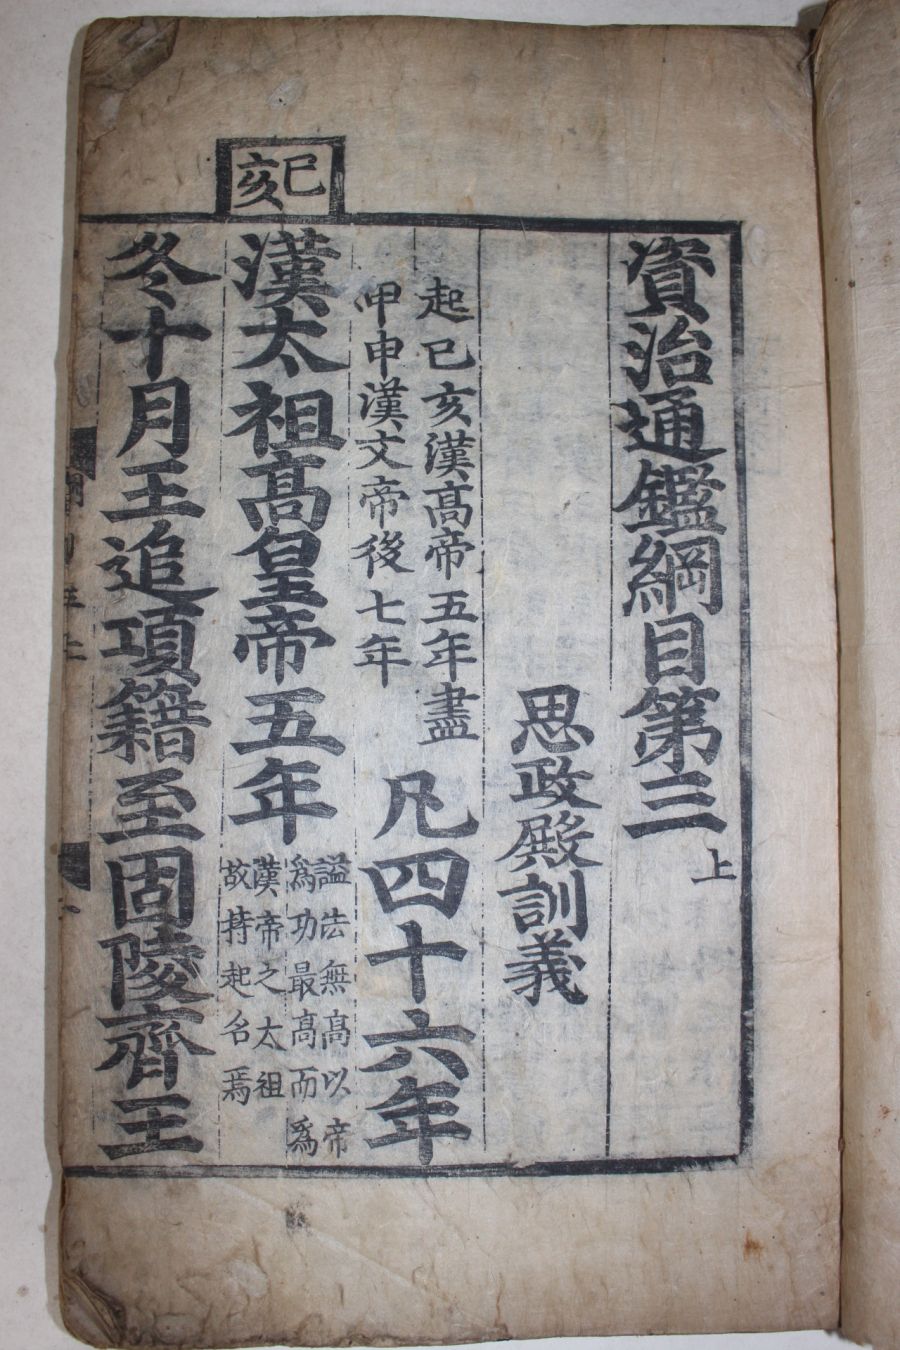 資治通鑑綱目第三上
思政殿訓義
起已亥漢高帝五年盡
甲申漢文帝後七年
凡四十六年
已亥
漢太祖高皇帝五年
謚法無高以帝
爲功最高而爲
漢帝之太祖
故持起名焉
冬十月王追項籍至固陵齊王